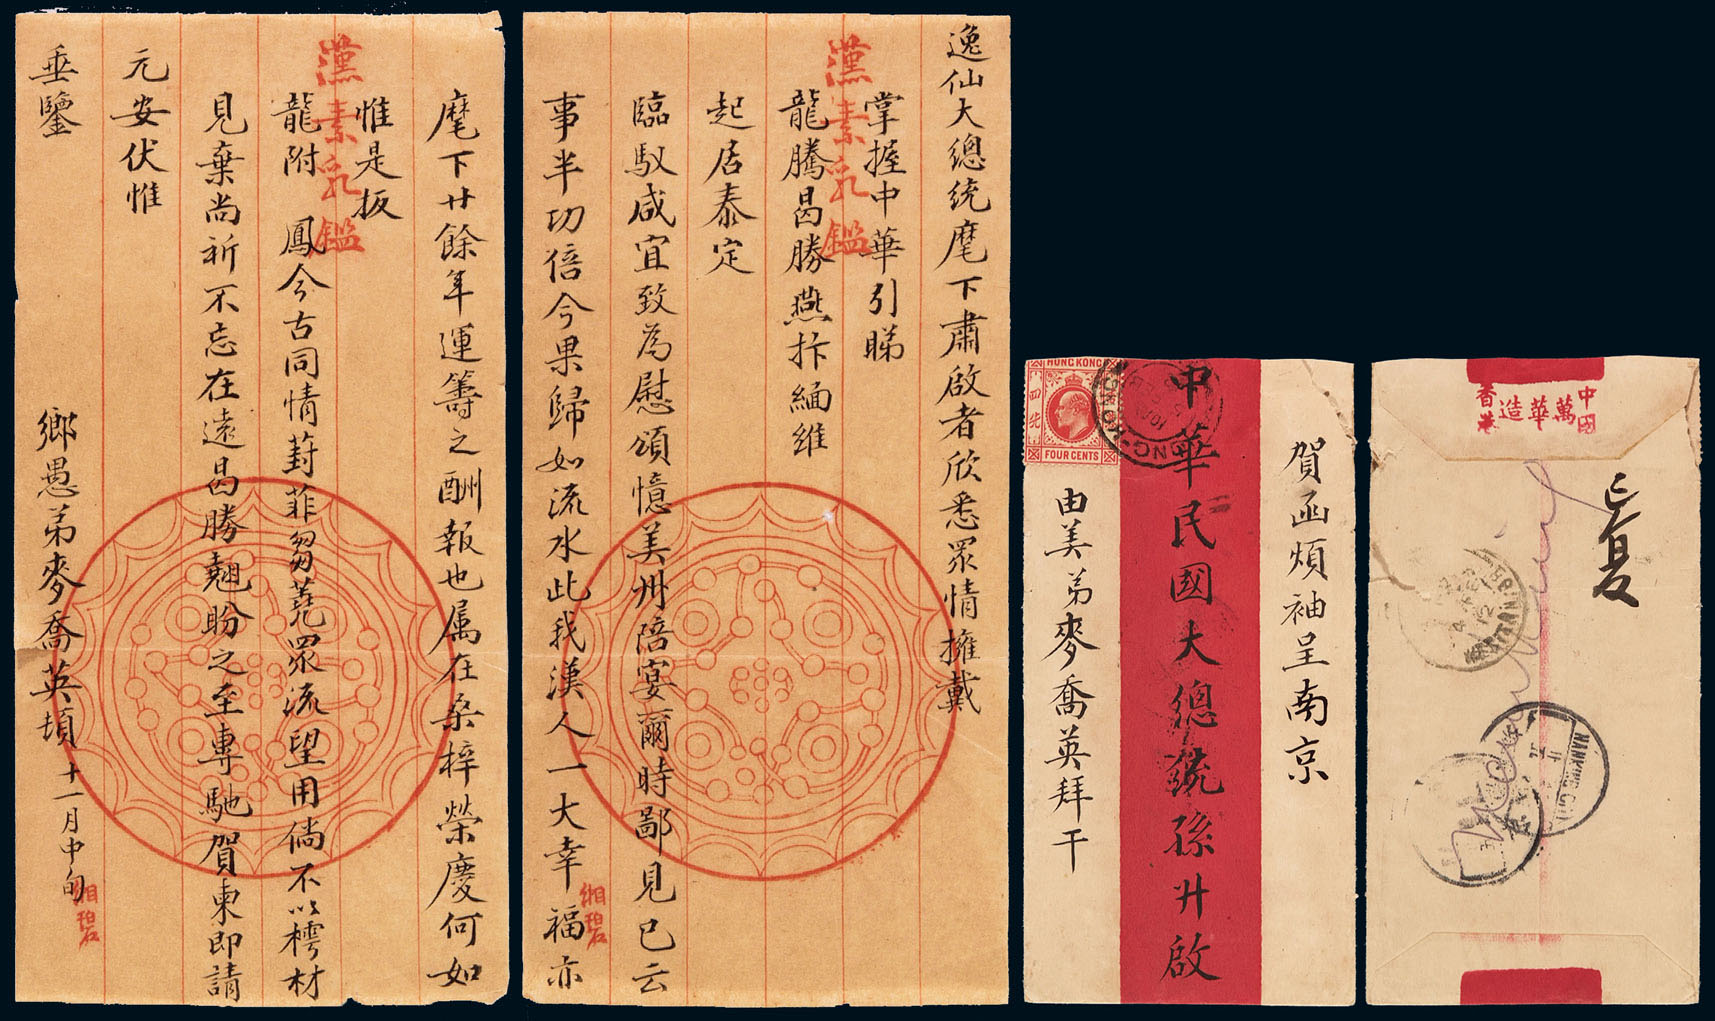 逸仙大總統麾下肅啟者欣悉眾情擁戴
掌握中華引睇
龍騰曷勝燕抃緬維
起居泰定
臨馭咸宜致為慰頌憶美州陪宴爾時鄙見已云
事半功倍今果歸如流水此我漢人一大幸福亦
素乳鑑
湘碧
麾下廿餘年運籌之酬報也属在桑梓榮慶何如
惟是扳
龍附鳳今古同情葑菲芻蕘眾流望用倘不以樗材
見棄尚祈不忘在遠曷勝翹盼之至專馳賀柬即請
元安伏惟
垂鑒
鄉愚弟麥喬英頓
十一月中旬
素乳鑑
湘碧
賀函煩袖呈南京
中華民國大總統孫升啟
由美弟麥喬英拜干
HONG KONG
FOUR CENTS
中國
萬華造
香港
NANKING CITY